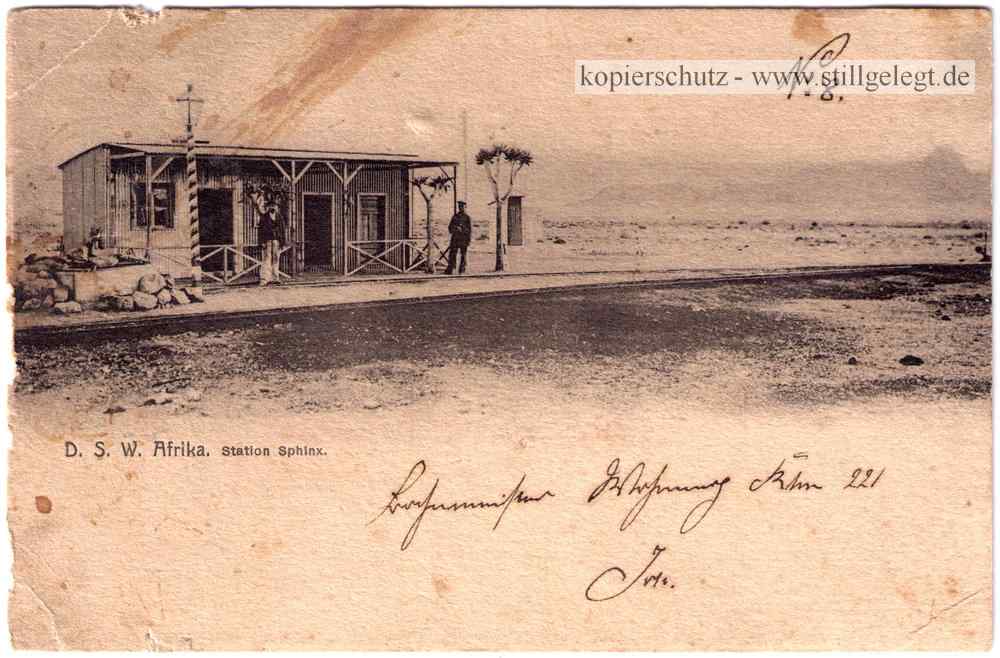 kopierschutz - www.stillgelegt.de
No 8.
D. S. W. Afrika. Station Sphinx.
Bahnmeister Wohnung Km 221